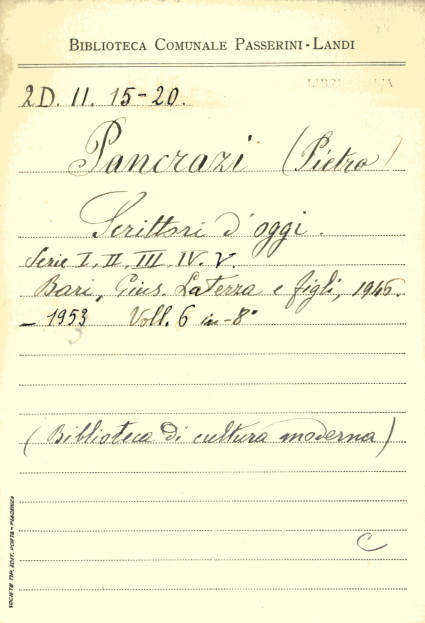 BIBLIOTECA COMUNALE PASSERINI-LANDI
2D. II. 15-20.
Pancrazi (Pietro)
Scrittori d'oggi.
Serie I, II, III, IV. V.
Bari, Gius. Laterza e figli, 1946.
- 1953 Voll. 6 in-8°
(Biblioteca di cultura moderna)
C
SOCIETÀ TIP. EDIT. PORTA - PIACENZA